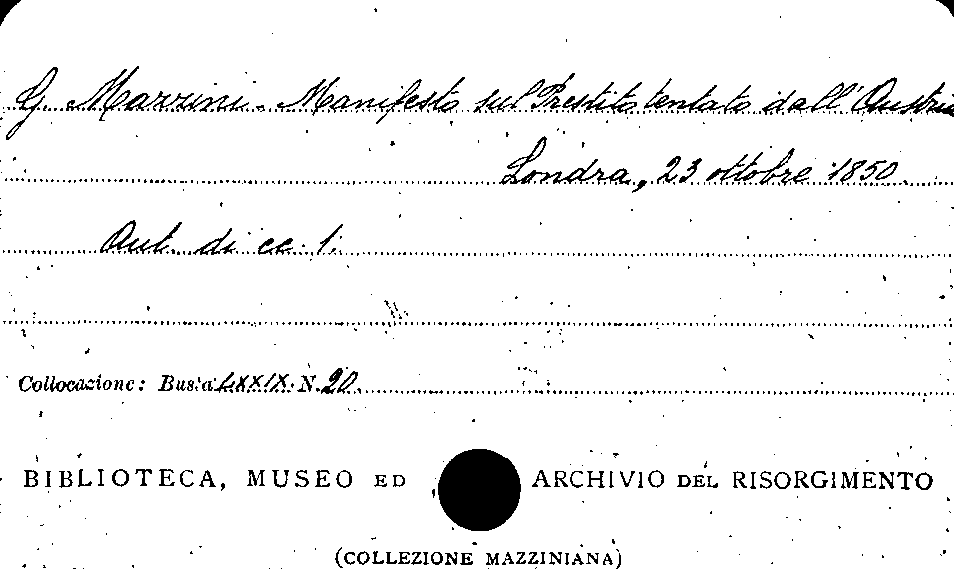 G. Mazzini. Manifesto sul Prestito tentato dall'Austria
Londra, 23 ottobre 1850.
Aut. di cc. 1.
Collocazione: Busta LXXIX. N. 20.
BIBLIOTECA, MUSEO ED ARCHIVIO DEL RISORGIMENTO
(COLLEZIONE MAZZINIANA)